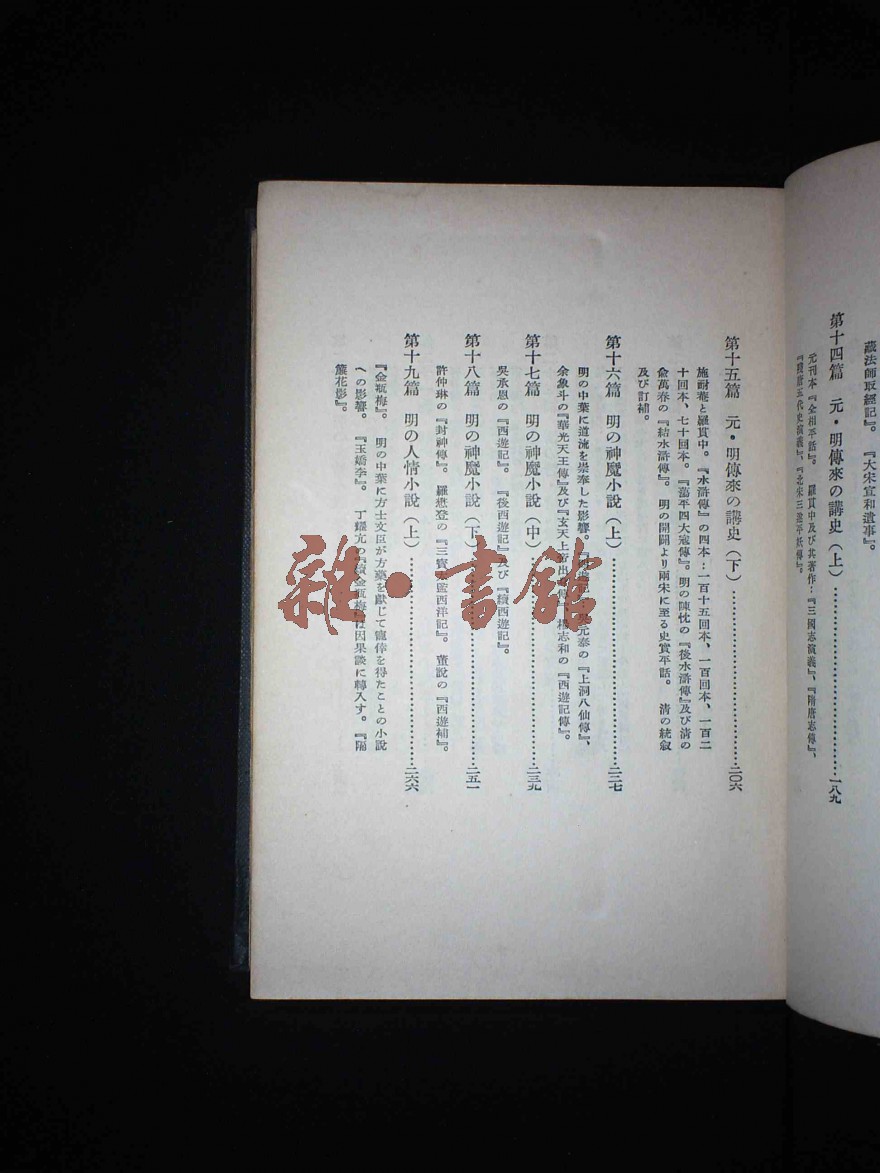 藏法師取經記』。『大宋宣和遺事』。
第十四篇 元・明傳來の講史（上）……一八九
元刊本『全相平話』。羅貫中及び其著作：『三國志演義』、『隋唐志傳』、
『殘唐五代史演義』、『北宋三遂平妖傳』。
第十五篇 元・明傳來の講史（下）……二〇六
施耐菴と羅貫中。『水滸傳』の四本：一百十五回本、一百回本、一百二
十回本、七十回本。『蕩平四大寇傳』。明の陳忱の『後水滸傳』及び清の
兪萬春の『結水滸傳』。明の開闢より兩宋に至る史實平話。清の統敍
及び訂補。
第十六篇 明の神魔小說（上）……二二七
明の中葉に道流を崇奉した影響。元泰の『上洞八仙傳』、
余象斗の『華光天王傳』及び『玄天上帝出 志和の『西遊記傳』。
第十七篇 明の神魔小說（中）……二三九
吳承恩の『西遊記』。『後西遊記』及び『續西遊記』。
第十八篇 明の神魔小說（下）……二五一
許仲琳の『封神傳』。羅懋登の『三寶太監西洋記』。董說の『西遊補』。
第十九篇 明の人情小說（上）……二六六
『金瓶梅』。明の中葉に方士文臣が方藥を獻じて寵倖を得たことの小說
への影響。『玉嬌李』。丁耀亢の『續金瓶梅』は因果談に轉入す。『隔
簾花影』。
雜・書館